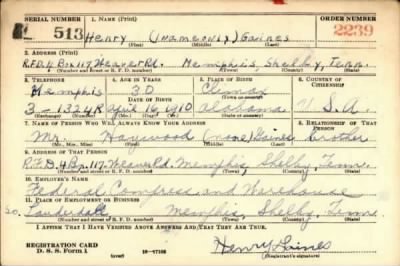 SERIAL NUMBER 1. NAME (Print) ORDER NUMBER
513 Henry (name only) Gaines 2239
(First) (Middle) (Last)
2. ADDRESS (Print)
R.F.D. 4 Box 117 Weaver Rd. Memphis, Shelby, Tenn.
(Number and street or R. F. D. number) (Town) (County) (State)
3. TELEPHONE 4. AGE IN YEARS 5. PLACE OF BIRTH 6. COUNTRY OF CITIZENSHIP
Memphis 30 Climax
DATE OF BIRTH (Town or county)
3-1324R April 16 1910 Alabama U.S.A.
(Exchange) (No.) (Mo.) (Day) (Yr.) (State or country)
7. NAME OF PERSON WHO WILL ALWAYS KNOW YOUR ADDRESS 8. RELATIONSHIP OF THAT PERSON
Mr. Haywood (none) Gaines brother
(Mr., Mrs., Miss) (First) (Middle) (Last)
9. ADDRESS OF THAT PERSON
R.F.D. 4 Box 117 Weaver Rd. Memphis, Shelby, Tenn.
(Number and street or R. F. D. number) (Town) (County) (State)
10. EMPLOYER'S NAME
Federal Compress and Warehouse
11. PLACE OF EMPLOYMENT OR BUSINESS
So. Lauderdale Memphis, Shelby, Tenn
(Number and street or R. F. D. number) (Town) (County) (State)
I AFFIRM THAT I HAVE VERIFIED ABOVE ANSWERS AND THAT THEY ARE TRUE.
REGISTRATION CARD
D. S. S. Form 1 (over) Henry Gaines
(Registrant's signature)